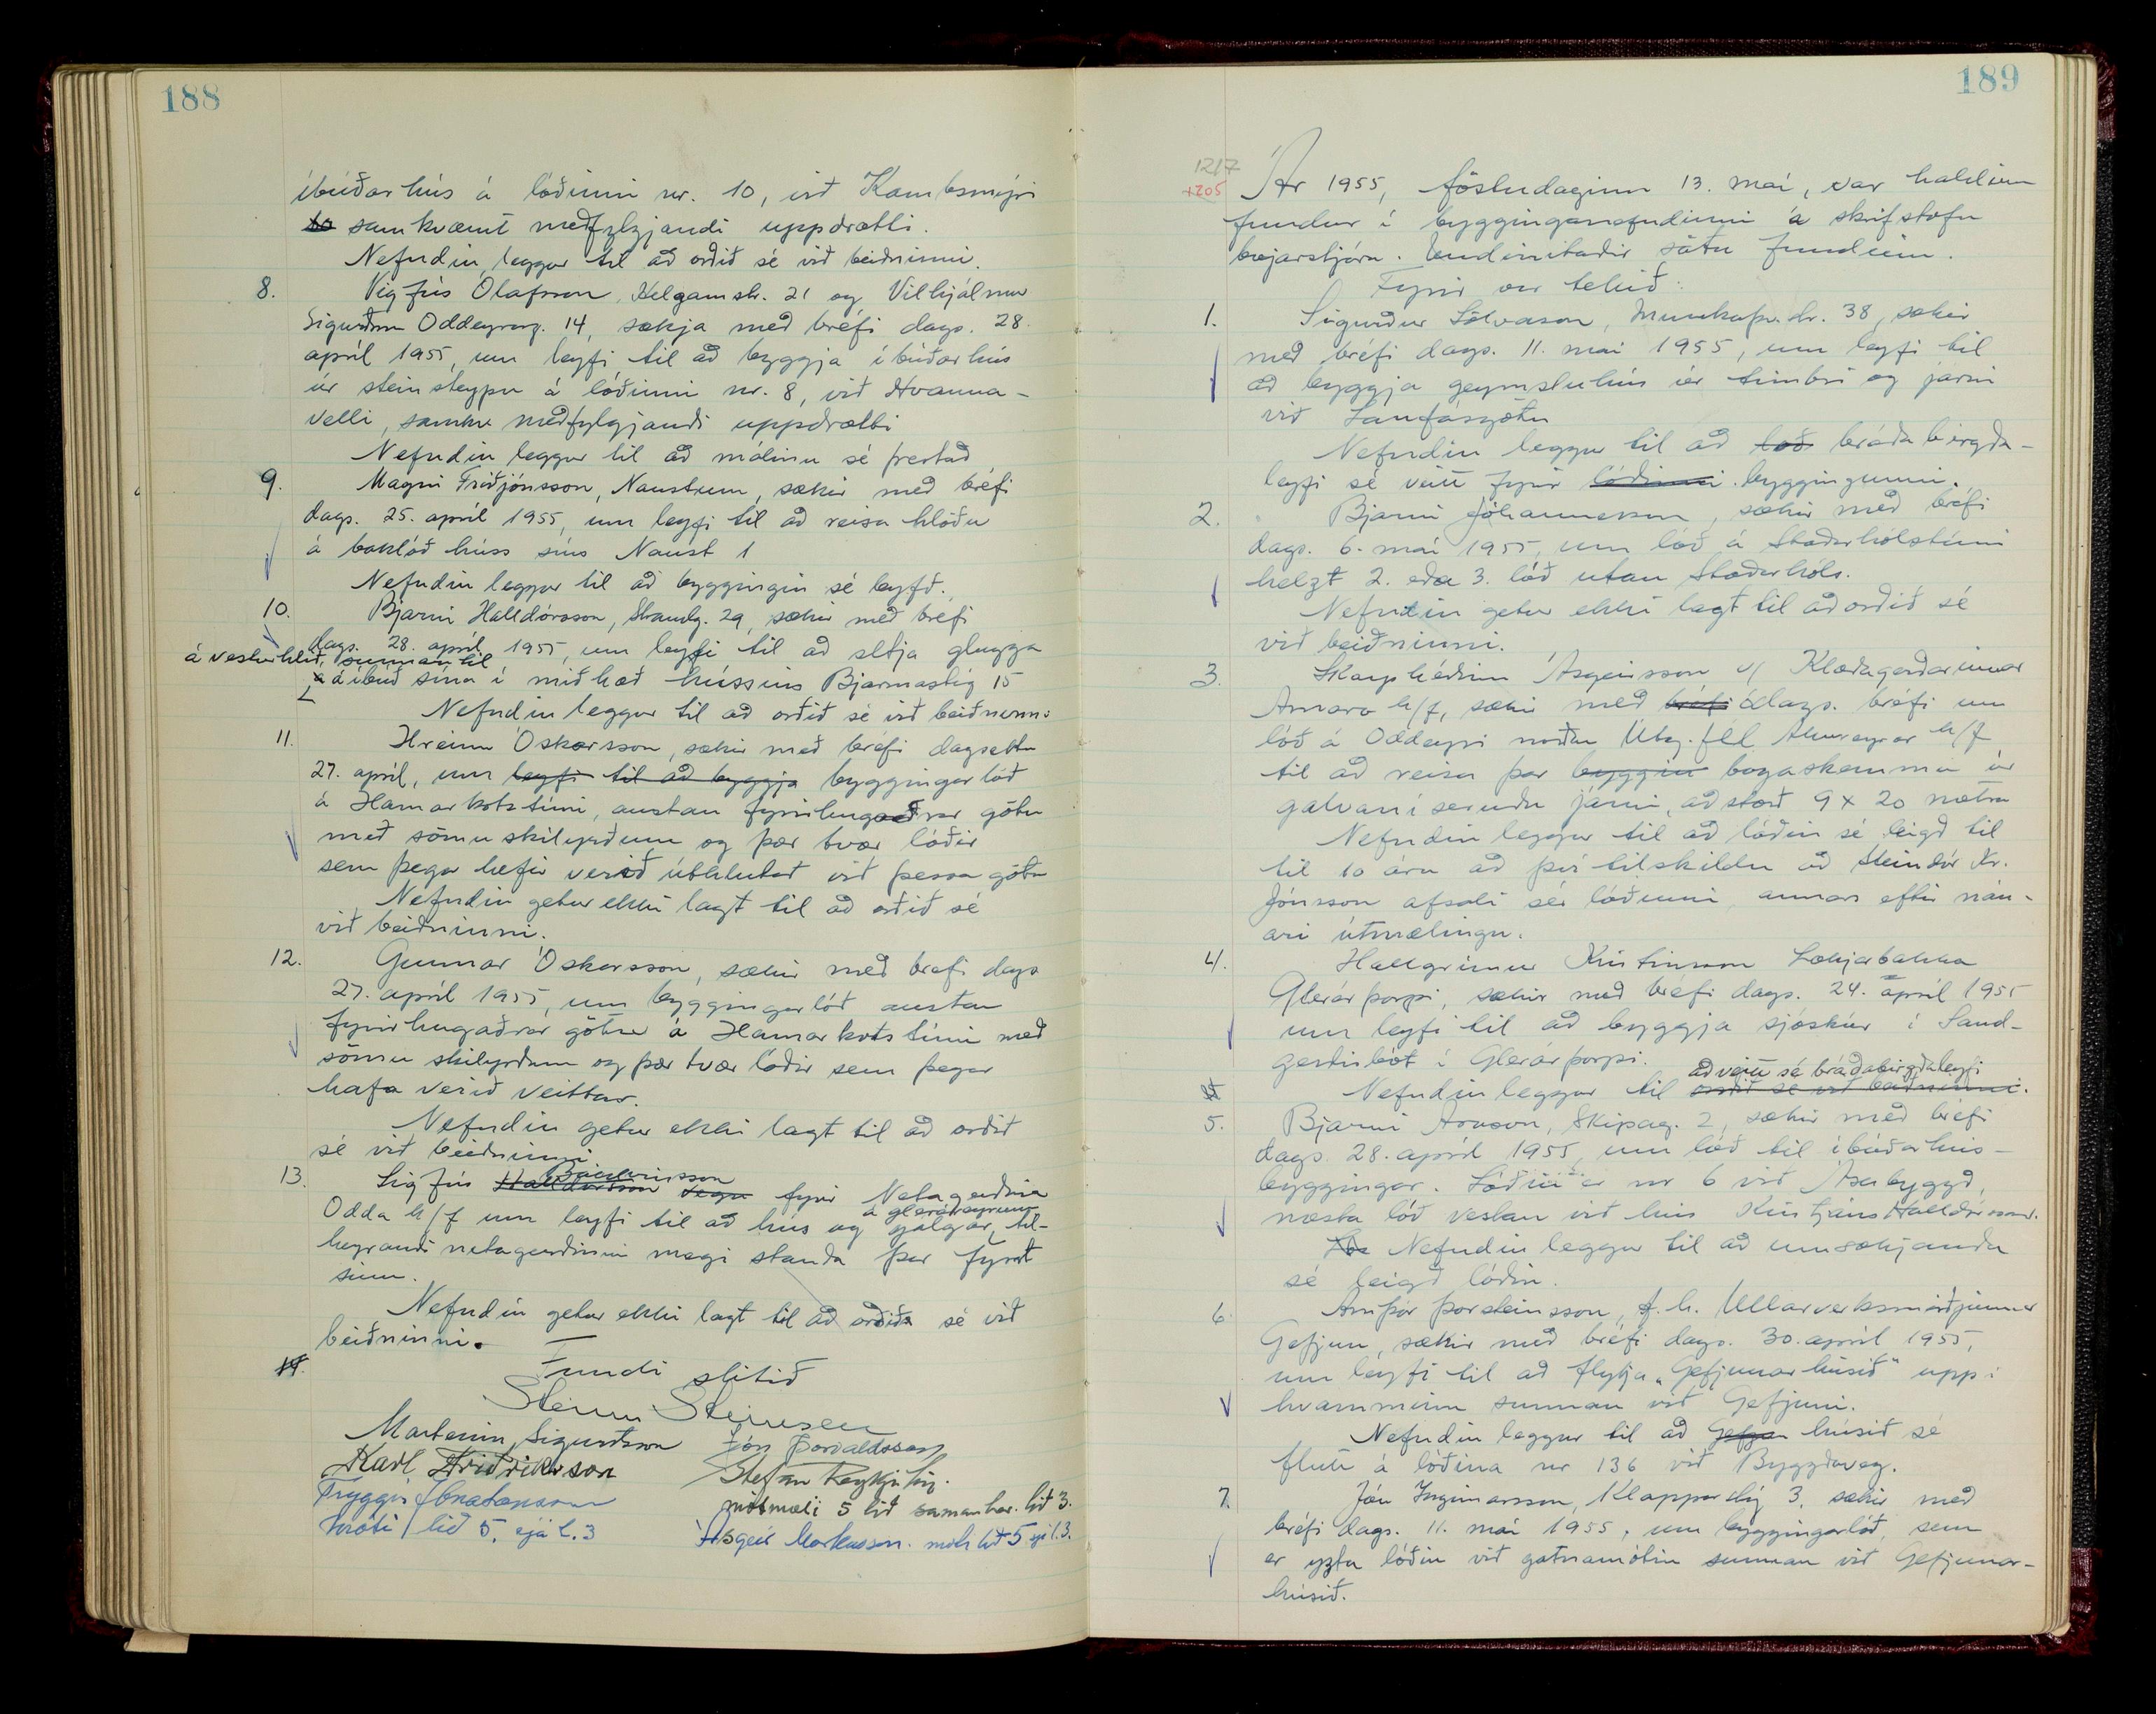 188
íbúðarhús á lóðinni nr. 10, við Kambsmýri
10 samkvæmt meðfylgjandi uppdrætti.
Nefndin leggur til að orðið sé við beiðninni.
8. Vigfús Ólafsson, Helgamstr. 21 og Vilhjálmur
Sigurðsson Oddeyrarg. 14, sækja með bréfi dags. 28.
apríl 1955, um leyfi til að byggja íbúðarhús
úr steinsteypu á lóðinni nr. 8, við Hvanna-
velli, samkv. meðfylgjandi uppdrætti
Nefndin leggur til að málinu sé frestað
9. Magni Friðjónsson, Naustum, sækir með bréfi
dags. 25. apríl 1955, um leyfi til að reisa hlöðu
á baklóð húss síns Naust 1
Nefndin leggur til að byggingin sé leyfð.
10. Bjarni Halldórsson, Strandg. 29, sækir með bréfi
dags. 28. apríl 1955, um leyfi til að setja glugga
á vesturhlið, sunnan til
á íbúð sína í miðhæð hússins Bjarmastíg 15
Nefndin leggur til að orðið sé við beiðninni.
11. Hreinn Óskarsson, sækir með bréfi dagsettu
27. apríl, um leyfi til að byggja byggingarlóð
á Hamarkotstúni, austan fyrirhugaðrar götu
með sömu skilyrðum og þær tvær lóðir
sem þegar hefir verið úthlutað við þessa götu
Nefndin getur ekki lagt til að orðið sé
við beiðninni.
12. Gunnar Óskarsson, sækir með bréfi dags
27. apríl 1955, um byggingarlóð austan
fyrirhugaðrar götu á Hamarkotstúni með
sömu skilyrðum og þær tvær lóðir sem þegar
hafa verið veittar.
Nefndin getur ekki lagt til að orðið
sé við beiðninni
Baldvinsson
13. Sigfús Halldórsson fyrir Netagerðina
á gleráreyrum
Odda h/f um leyfi til að hús og gálgar, til-
heyrandi netagerðinni megi standa þar fyrst
sinn.
Nefndin getur ekki lagt til að orðið sé við
beiðninni.
14. Fundi slitið
Steinn Steinsen
Marteinn Sigurðsson Jón Þorvaldsson
Karl Friðriksson Stefán Reykjalín
Tryggvi Jónatansson mótmæli 5 lið samanber. lið 3.
móti lið 5, sjá l. 3 Ásgeir Markússon. móti lið 5 sjá l. 3.
189
1217
1205
Ár 1955, föstudaginn 13. maí, var haldinn
fundur í bygginganefndinni á skrifstofu
bæjarstjóra. Undirritaðir sátu fundinn.
Fyrir var tekið:
1. Sigurður Sölvason, Munkaþv.str. 38, sækir
með bréfi dags. 11. maí 1955, um leyfi til
að byggja geymsluhús úr timbri og járni
við Laufásgötu
Nefndin leggur til að lóð bráðabirgða-
leyfi sé veitt fyrir lóðinni byggingunni.
2. Bjarni Jóhannesson, sækir með bréfi
dags. 6. maí 1955, um lóð á Staðarhólstúni
helzt 2. eða 3. lóð utan Staðarhóls.
Nefndin getur ekki lagt til að orðið sé
við beiðninni.
3. Skarphéðinn Ásgeirsson v/ Klæðagerðarinnar
Amaro h/f, sækir með bréfi ódags. bréfi um
lóð á Oddeyri norðan Útg.fél. Akureyrar h/f
til að reisa þar byggin bogaskemmu úr
galvaníseruðu járni, að stærð 9 x 20 metra
Nefndin leggur til að lóðin sé leigð til
til 10 ára að því tilskildu að Steindór Kr.
Jónsson afsali sér lóðinni, annars eftir nán-
ari útmælingu.
4. Hallgrímur Kristinsson Lækjarbakka
Glerárþorpi, sækir með bréfi dags. 24. apríl 1955
um leyfi til að byggja sjóskúr í Sand-
gerðisbót í Glerárþorpi.
að veitt sé bráðabirgðaleyfi
Nefndin leggur til orðið sé við beiðninni.
5. Bjarni Arason, Skipag. 2, sækir með bréfi
dags. 28. apríl 1955, um lóð til íbúðarhús-
byggingar. Lóðin er nr 6 við Ásabyggð,
næsta lóð vestan við hús Kristjáns Halldórssonar.
Nefndin leggur til að umsækjanda
sé leigð lóðin.
6. Arnþór Þorsteinsson, f.h. Ullarverksmiðjunnar
Gefjun, sækir með bréfi dags. 30. apríl 1955,
um leyfi til að flytja „Gefjunarhúsið“ upp í
hvamminn sunnan við Gefjuni.
Nefndin leggur til að Gefjun húsið sé
flutt á lóðina nr 136 við Byggðaveg.
7. Jón Ingimarsson, Klapparstíg 3, sækir með
bréfi dags. 11. maí 1955, um byggingarlóð, sem
er yzta lóðin við gatnamótin sunnan við Gefjunar-
húsið.